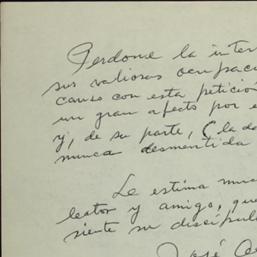 Perdone la inter
sus valiosas ocupaci
cause con esta petició
un gran afecto por e
y, de su parte, la da
nunca desmentida
Le estima muc
lector y amigo, que
siente su discípul
José